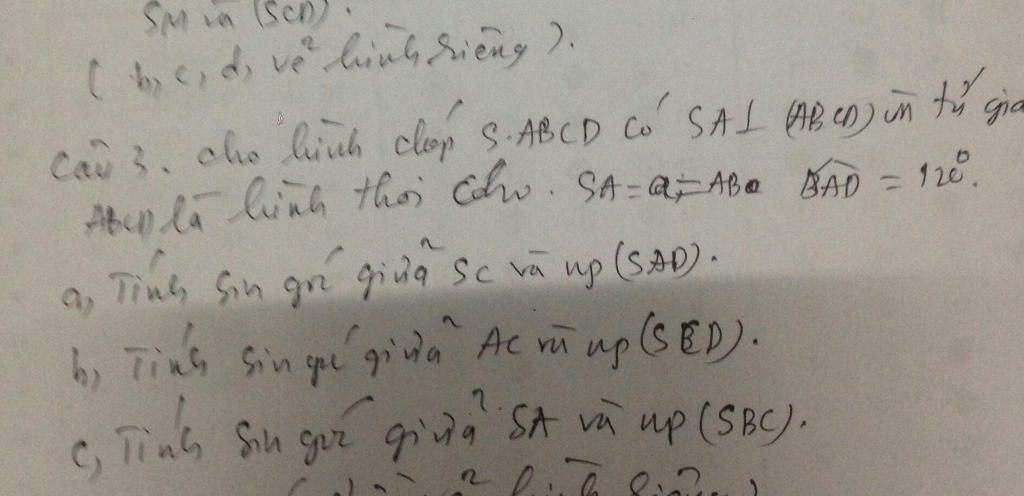 SM và (SCD).
( b, c, d, vẽ hình riêng ).
Câu 3. cho hình chóp S.ABCD có SA⊥ (ABCD) và tứ giá
ABCD là hình thoi SA = a = AB BAD = 120°.
a, Tính sin góc giữa SC và mp (SAD).
b, Tính sin góc giữa AC và mp (SCD).
c, Tính sin góc giữa SA và mp (SBC).
hình riêng )